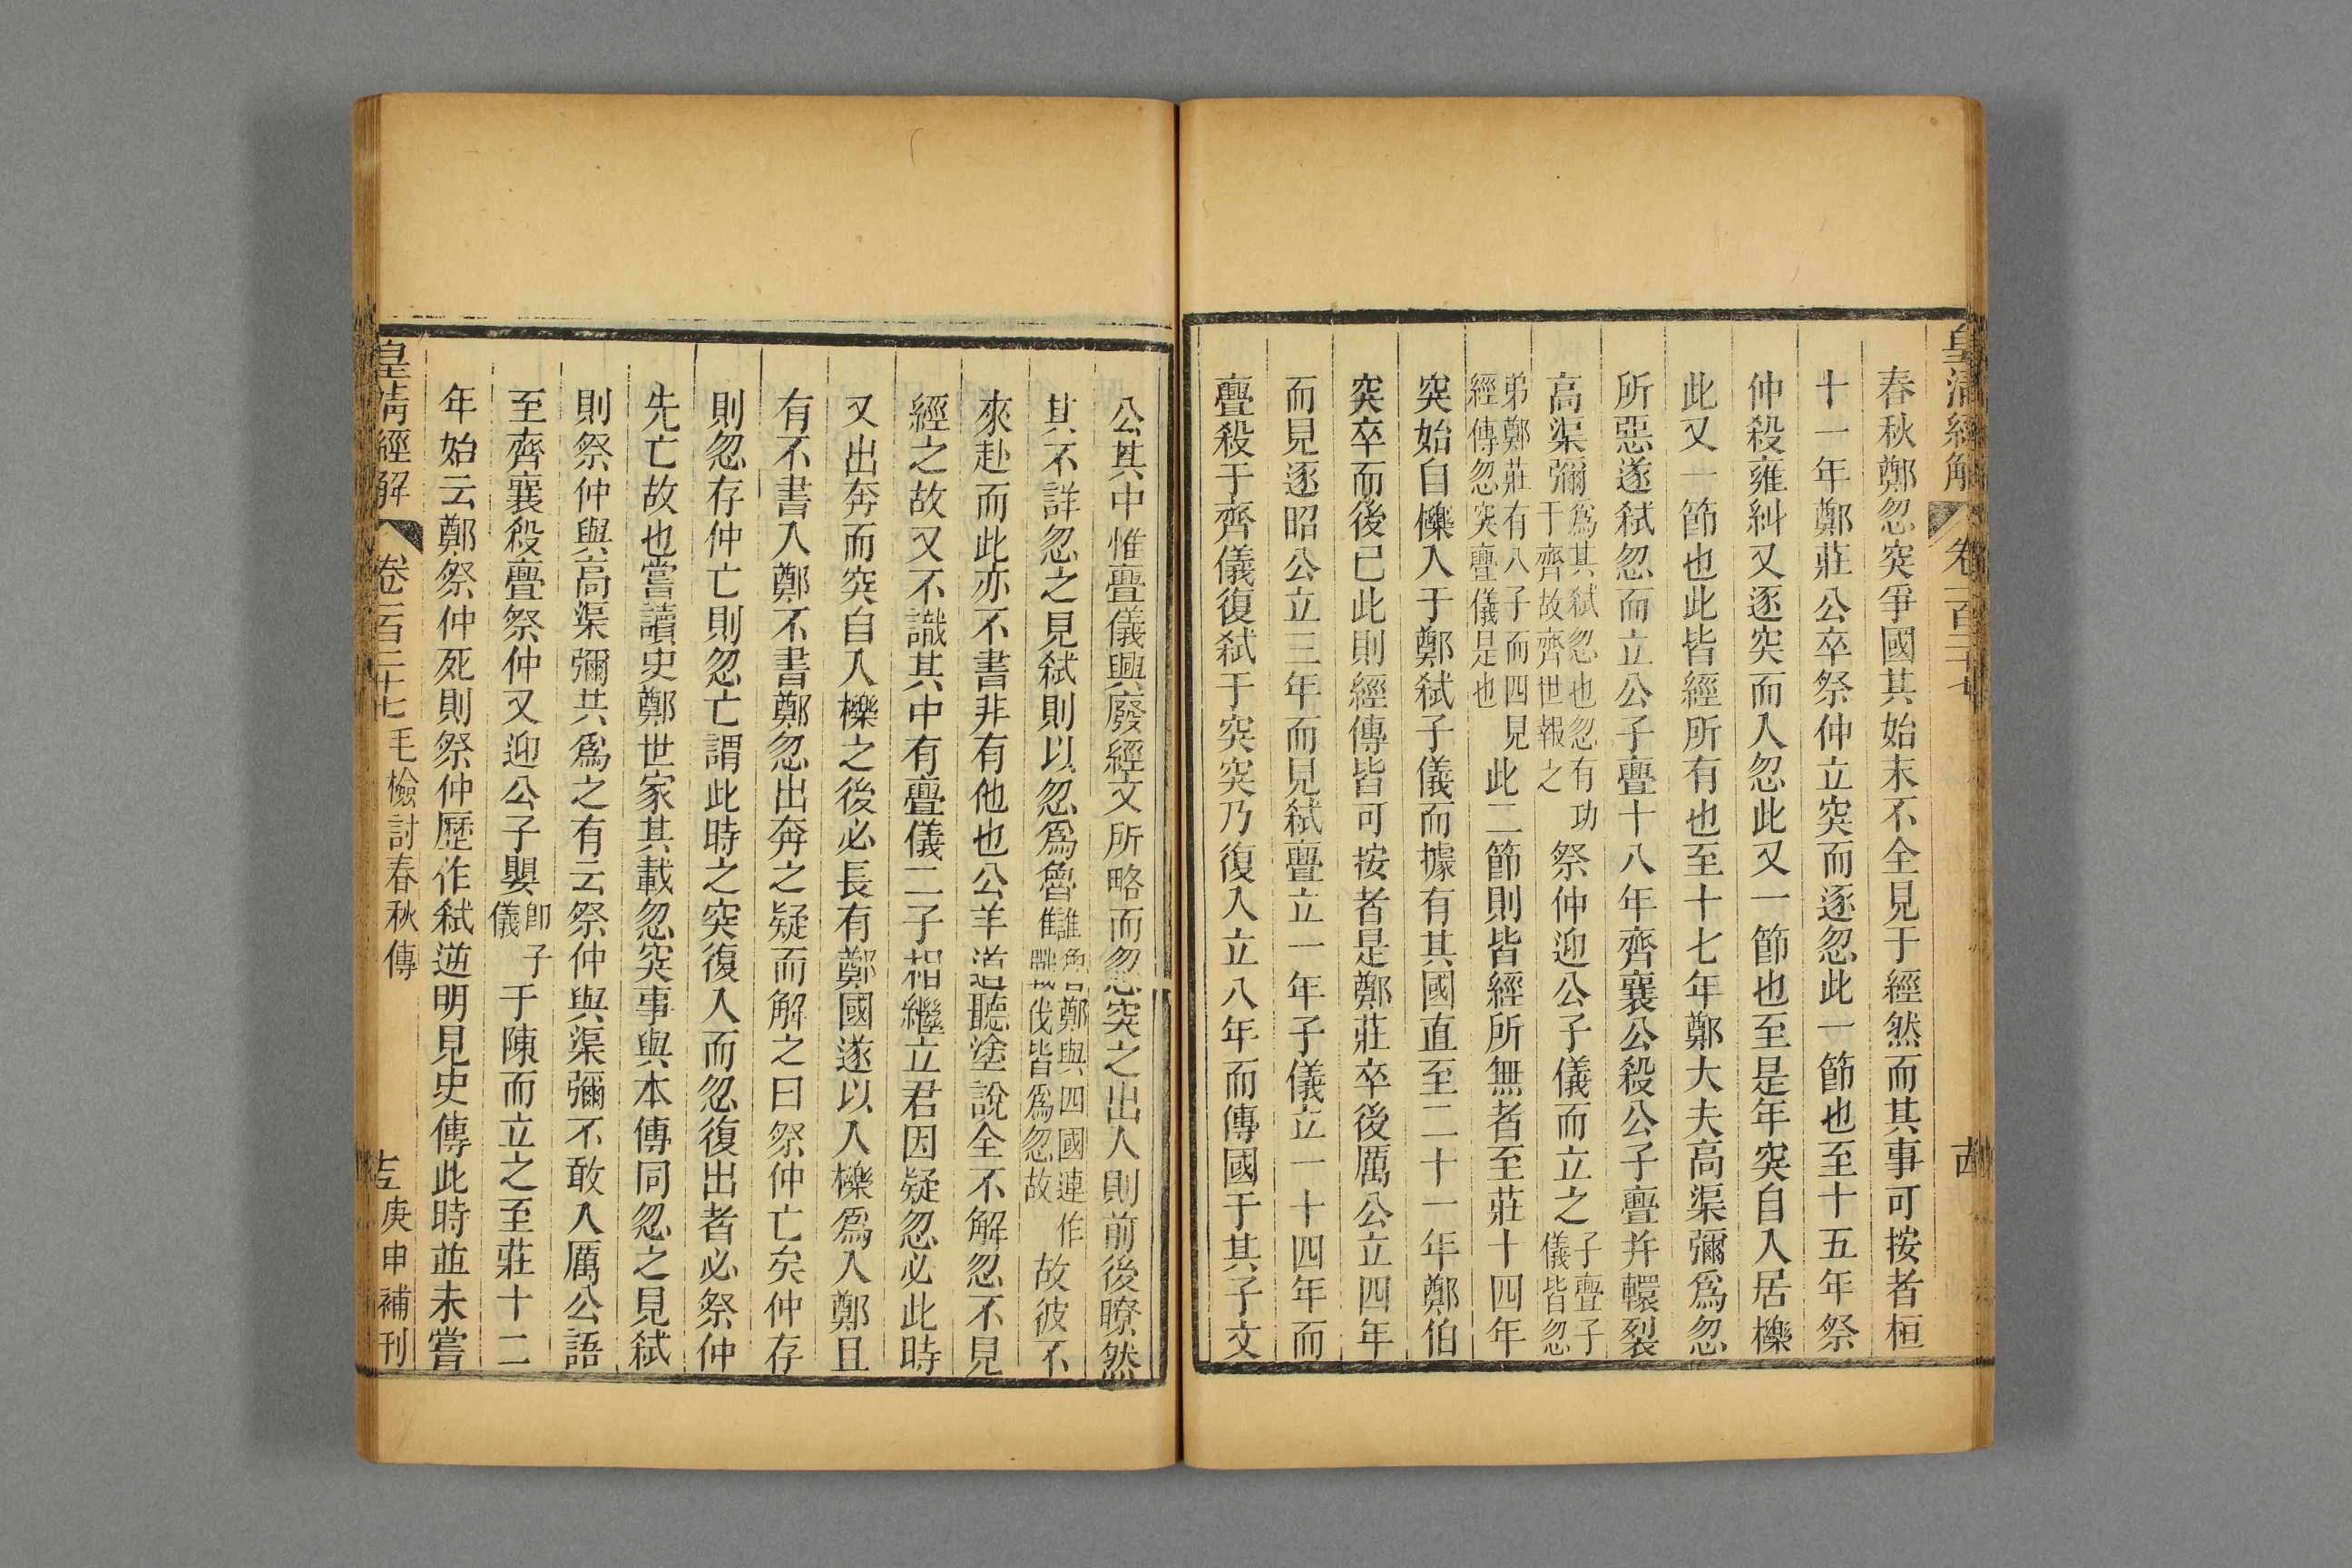 皇清經解
卷一百二十七
春秋鄭忽突爭國其始末不全見于經然而其事可按者桓
十一年鄭莊公卒祭仲立突而逐忽此一節也至十五年祭
仲殺雍糾又逐突而入忽此又一節也至是年突自入居櫟
此又一節也此皆經所有也至十七年鄭大夫高渠彌爲忽
所惡遂弒忽而立公子亹十八年齊襄公殺公子亹并轘裂
高渠彌爲其弒忽也忽有功于齊故齊世報之祭仲迎公子儀而立之子亹子儀皆忽
弟鄭莊有八子而四見經傳忽突亹儀是也此二節則皆經所無者至莊十四年
突始自櫟入于鄭弒子儀而據有其國直至二十一年鄭伯
突卒而後已此則經傳皆可按者是鄭莊卒後厲公立四年
而見逐昭公立三年而見弒亹立一年子儀立一十四年而
亹殺于齊儀復弒于突突乃復入立八年而傳國于其子文
公其中惟亹儀興廢經文所略而忽突之出入則前後瞭然
其不詳忽之見弒則以忽爲魯讎魯鄭與四國連作故彼不
來赴而此亦不書非有他也公羊道聽塗說全不解忽不見
經之故又不識其中有亹儀二子相繼立君因疑忽必此時
又出奔而突自入櫟之後必長有鄭國遂以入櫟爲入鄭且
有不書入鄭不書鄭忽出奔之疑而解之曰祭仲亡矣仲存
則忽存仲亡則忽亡謂此時之突復入而忽復出者必祭仲
先亡故也嘗讀史鄭世家其載忽突事與本傳同忽之見弒
則祭仲與高渠彌共爲之有云祭仲與渠彌不敢入厲公語
至齊襄殺亹祭仲又迎公子嬰卽子儀于陳而立之至莊十二
年始云鄭祭仲死則祭仲歷作弒逆明見史傳此時並未嘗
皇清經解
卷一百二十七
毛檢討春秋傳
庚申補刊